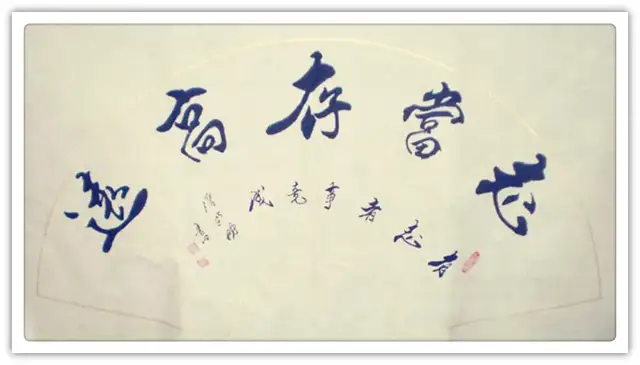 志當存高遠
有志者事竟成